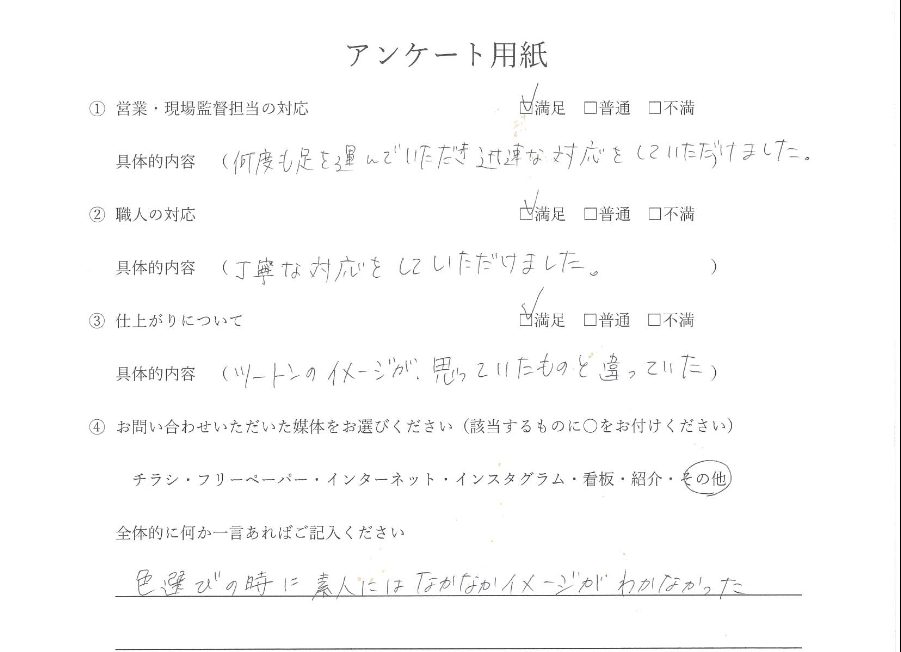 アンケート用紙
① 営業・現場監督担当の対応 ☑満足 □普通 □不満
具体的内容 （何度も足を運んでいただき迅速な対応をしていただけました。
② 職人の対応 ☑満足 □普通 □不満
具体的内容 （丁寧な対応をしていただけました。）
③ 仕上がりについて ☑満足 □普通 □不満
具体的内容 （ツートンのイメージが、思っていたものと違っていた）
④ お問い合わせいただいた媒体をお選びください（該当するものに〇をお付けください）
チラシ・フリーペーパー・インターネット・インスタグラム・看板・紹介・その他
全体的に何か一言あればご記入ください
色選びの時に素人にはなかなかイメージがわかなかった